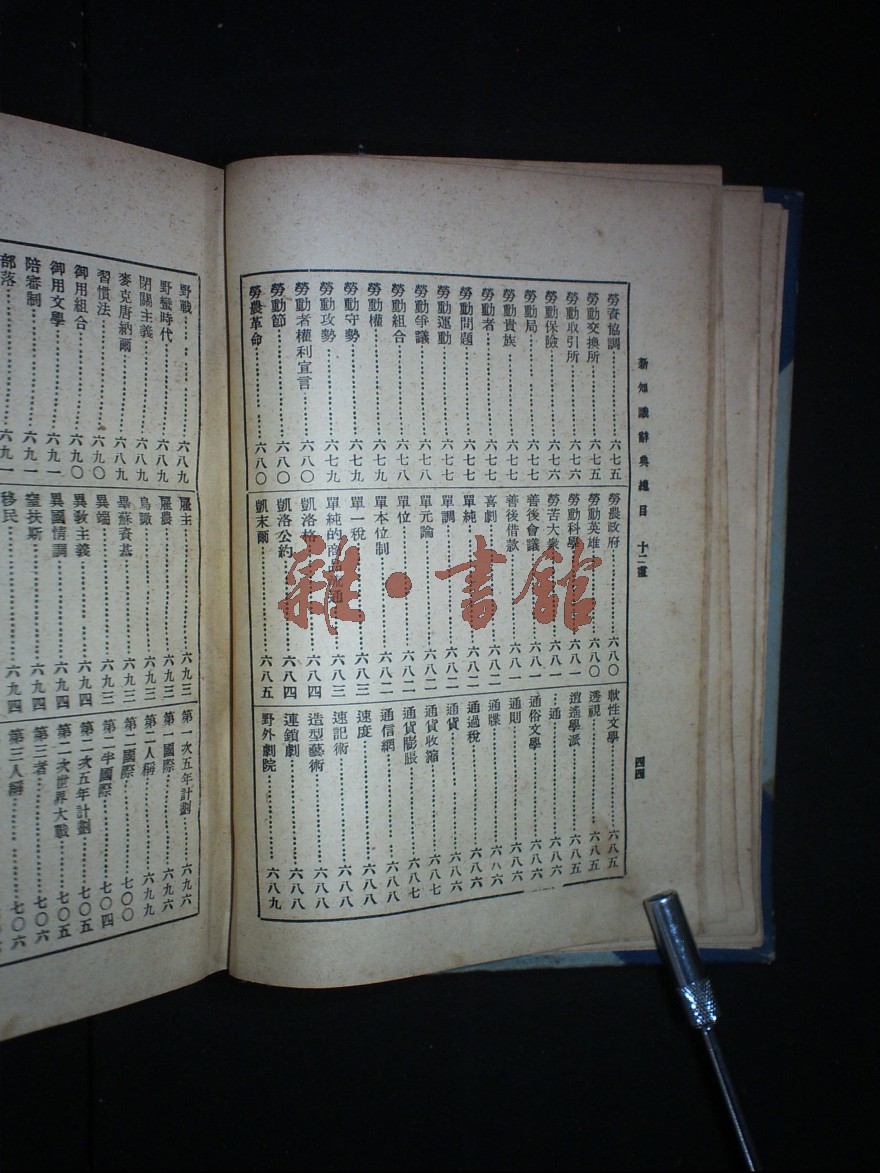 新知識辭典總目 十二畫
勞資協調……六七五
勞動交換所……六七五
勞動取引所……六七六
勞動保險……六七六
勞動局……六七七
勞動貴族……六七七
勞動者……六七七
勞動問題……六七七
勞動運動……六七八
勞動爭議……六七八
勞動組合……六七八
勞動權……六七九
勞動守勢……六七九
勞動攻勢……六七九
勞動者權利宣言……六八〇
勞動節……六八〇
勞農革命……六八〇
勞農政府……六八〇
勞動英雄……六八〇
勞動科學……六八一
勞苦大衆……六八一
善後會議……六八一
善後借款……六八一
喜劇……六八二
單純……六八二
單調……六八二
單元論……六八二
單位……六八二
單本位制……六八二
單一稅……六八三
單純的商品 通……六八三
凱洛格……六八四
凱洛公約……六八四
凱末爾……六八五
軟性文學……六八五
透視……六八五
逍遙學派……六八五
…通……六八六
通俗文學……六八六
通則……六八六
通牒……六八六
通過稅……六八六
通貨……六八六
通貨收縮……六八七
通貨膨脹……六八七
通信網……六八八
速度……六八八
速記術……六八八
造型藝術……六八八
連鎖劇……六八八
野外劇院……六八九
四四
野戰……六八九
野蠻時代……六八九
閉關主義……六八九
麥克唐納爾……六八九
習慣法……六九〇
御用組合……六九〇
御用文學……六九一
陪審制……六九一
部落……六九一
雇主……六九三
雇農……六九三
烏諏……六九三
畢蘇資基……六九三
異端……六九三
異教主義……六九四
異國情調……六九四
臺扶斯……六九四
移民……六九四
第一次五年計劃……六九六
第一國際……六九六
第二人稱……六九九
第二國際……七〇〇
第二半國際……七〇四
第二次五年計劃……七〇五
第二次世界大戰……七〇五
第三者……七〇六
第三人稱……七〇六
雜·書館